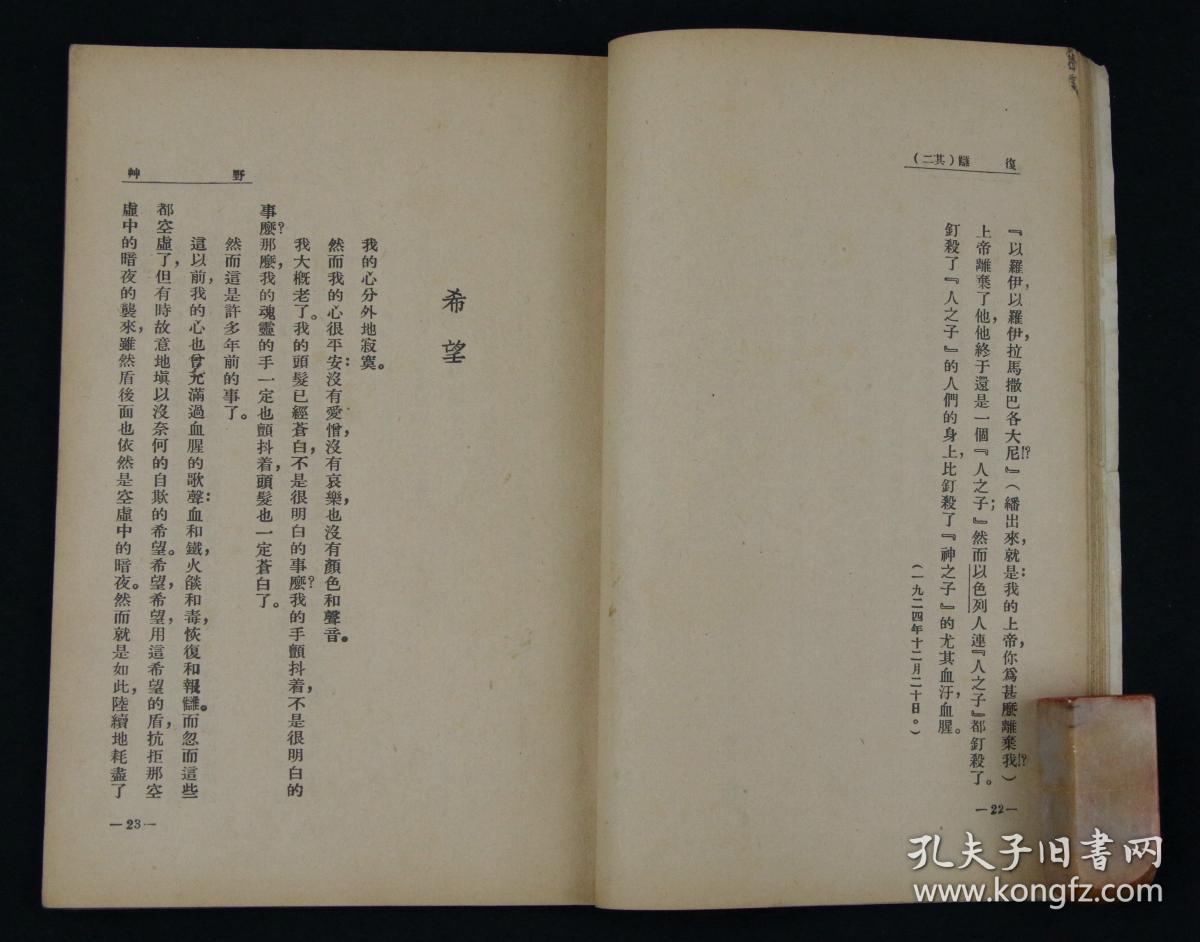 復讎（其二）
『以羅伊，以羅伊，拉馬撒巴各大尼⁉』（繙出來，就是：我的上帝，你爲甚麼離棄我⁉）
上帝離棄了他，他終于還是一個『人之子』；然而以色列人連『人之子』都釘殺了。
釘殺了『人之子』的人們的身上，比釘殺了『神之子』的尤其血汙，血腥。
（一九二四年十二月二十日。）
—22—
野艸
希望
我的心分外地寂寞。
然而我的心很平安：沒有愛憎，沒有哀樂，也沒有顏色和聲音。
我大概老了。我的頭髮已經蒼白，不是很明白的事麼？我的手顫抖着，不是很明白的
事麼？那麼，我的魂靈的手一定也顫抖着，頭髮也一定蒼白了。
然而這是許多年前的事了。
這以前，我的心也曾充滿過血腥的歌聲：血和鐵，火燄和毒，恢復和報讎。而忽而這些
都空虛了，但有時故意地塡以沒奈何的自欺的希望。希望，希望，用這希望的盾，抗拒那空
虛中的暗夜的襲來，雖然盾後面也依然是空虛中的暗夜。然而就是如此，陸續地耗盡了
—23—
孔夫子旧書网
www.kongfz.com